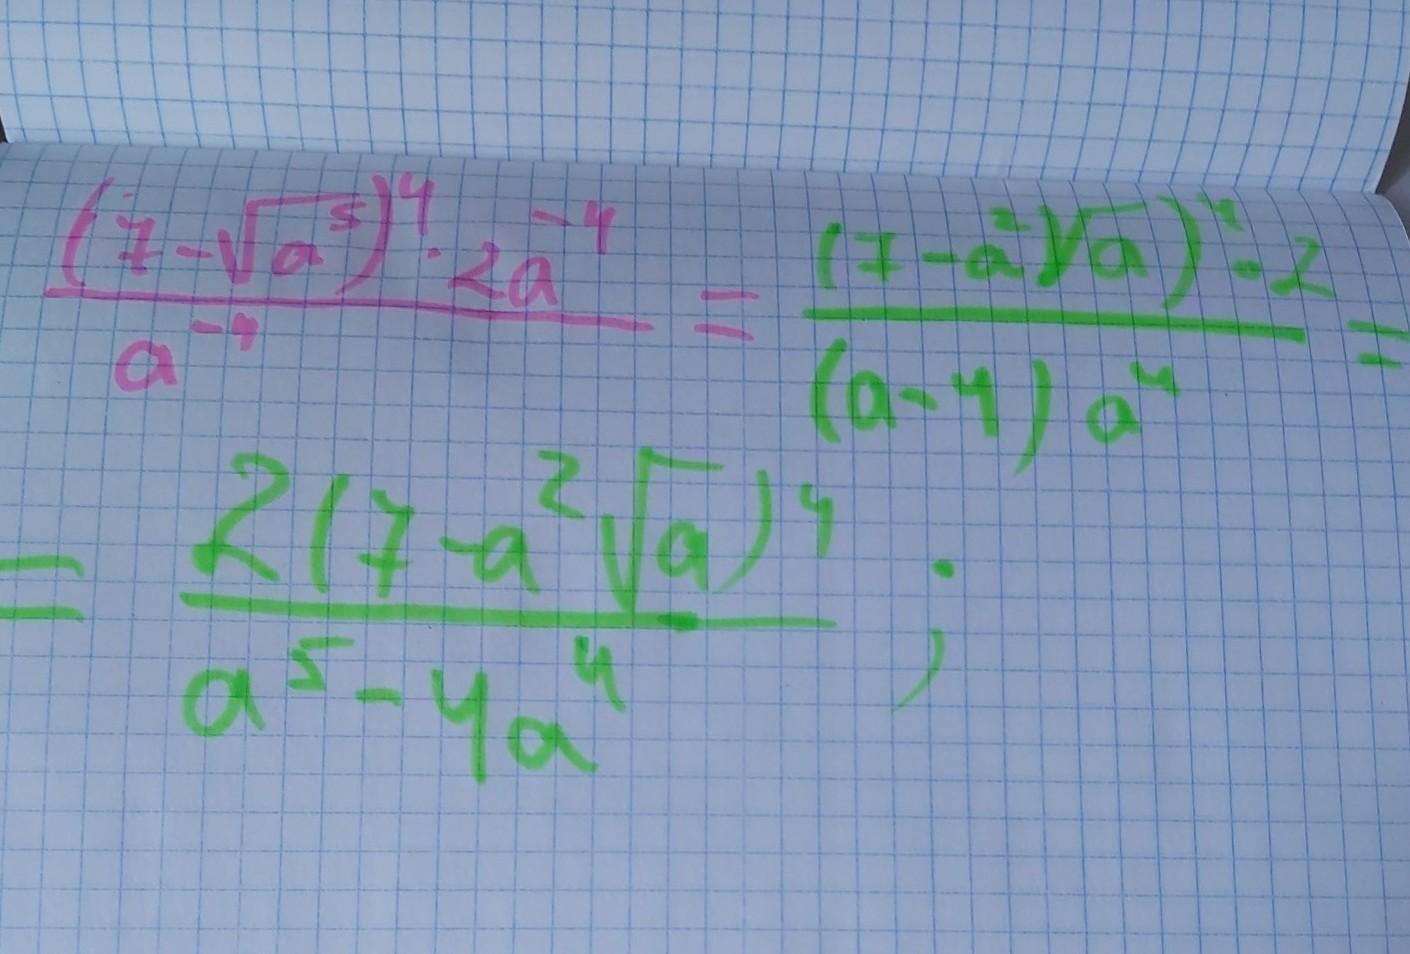 (7-√a⁵)⁴ · 2a⁻⁴ / a⁻⁴ = (7-a²√a)⁴ · 2 / (a-4) a⁴ =
= 2(7-a²√a)⁴ / a⁵-4a⁴ ;